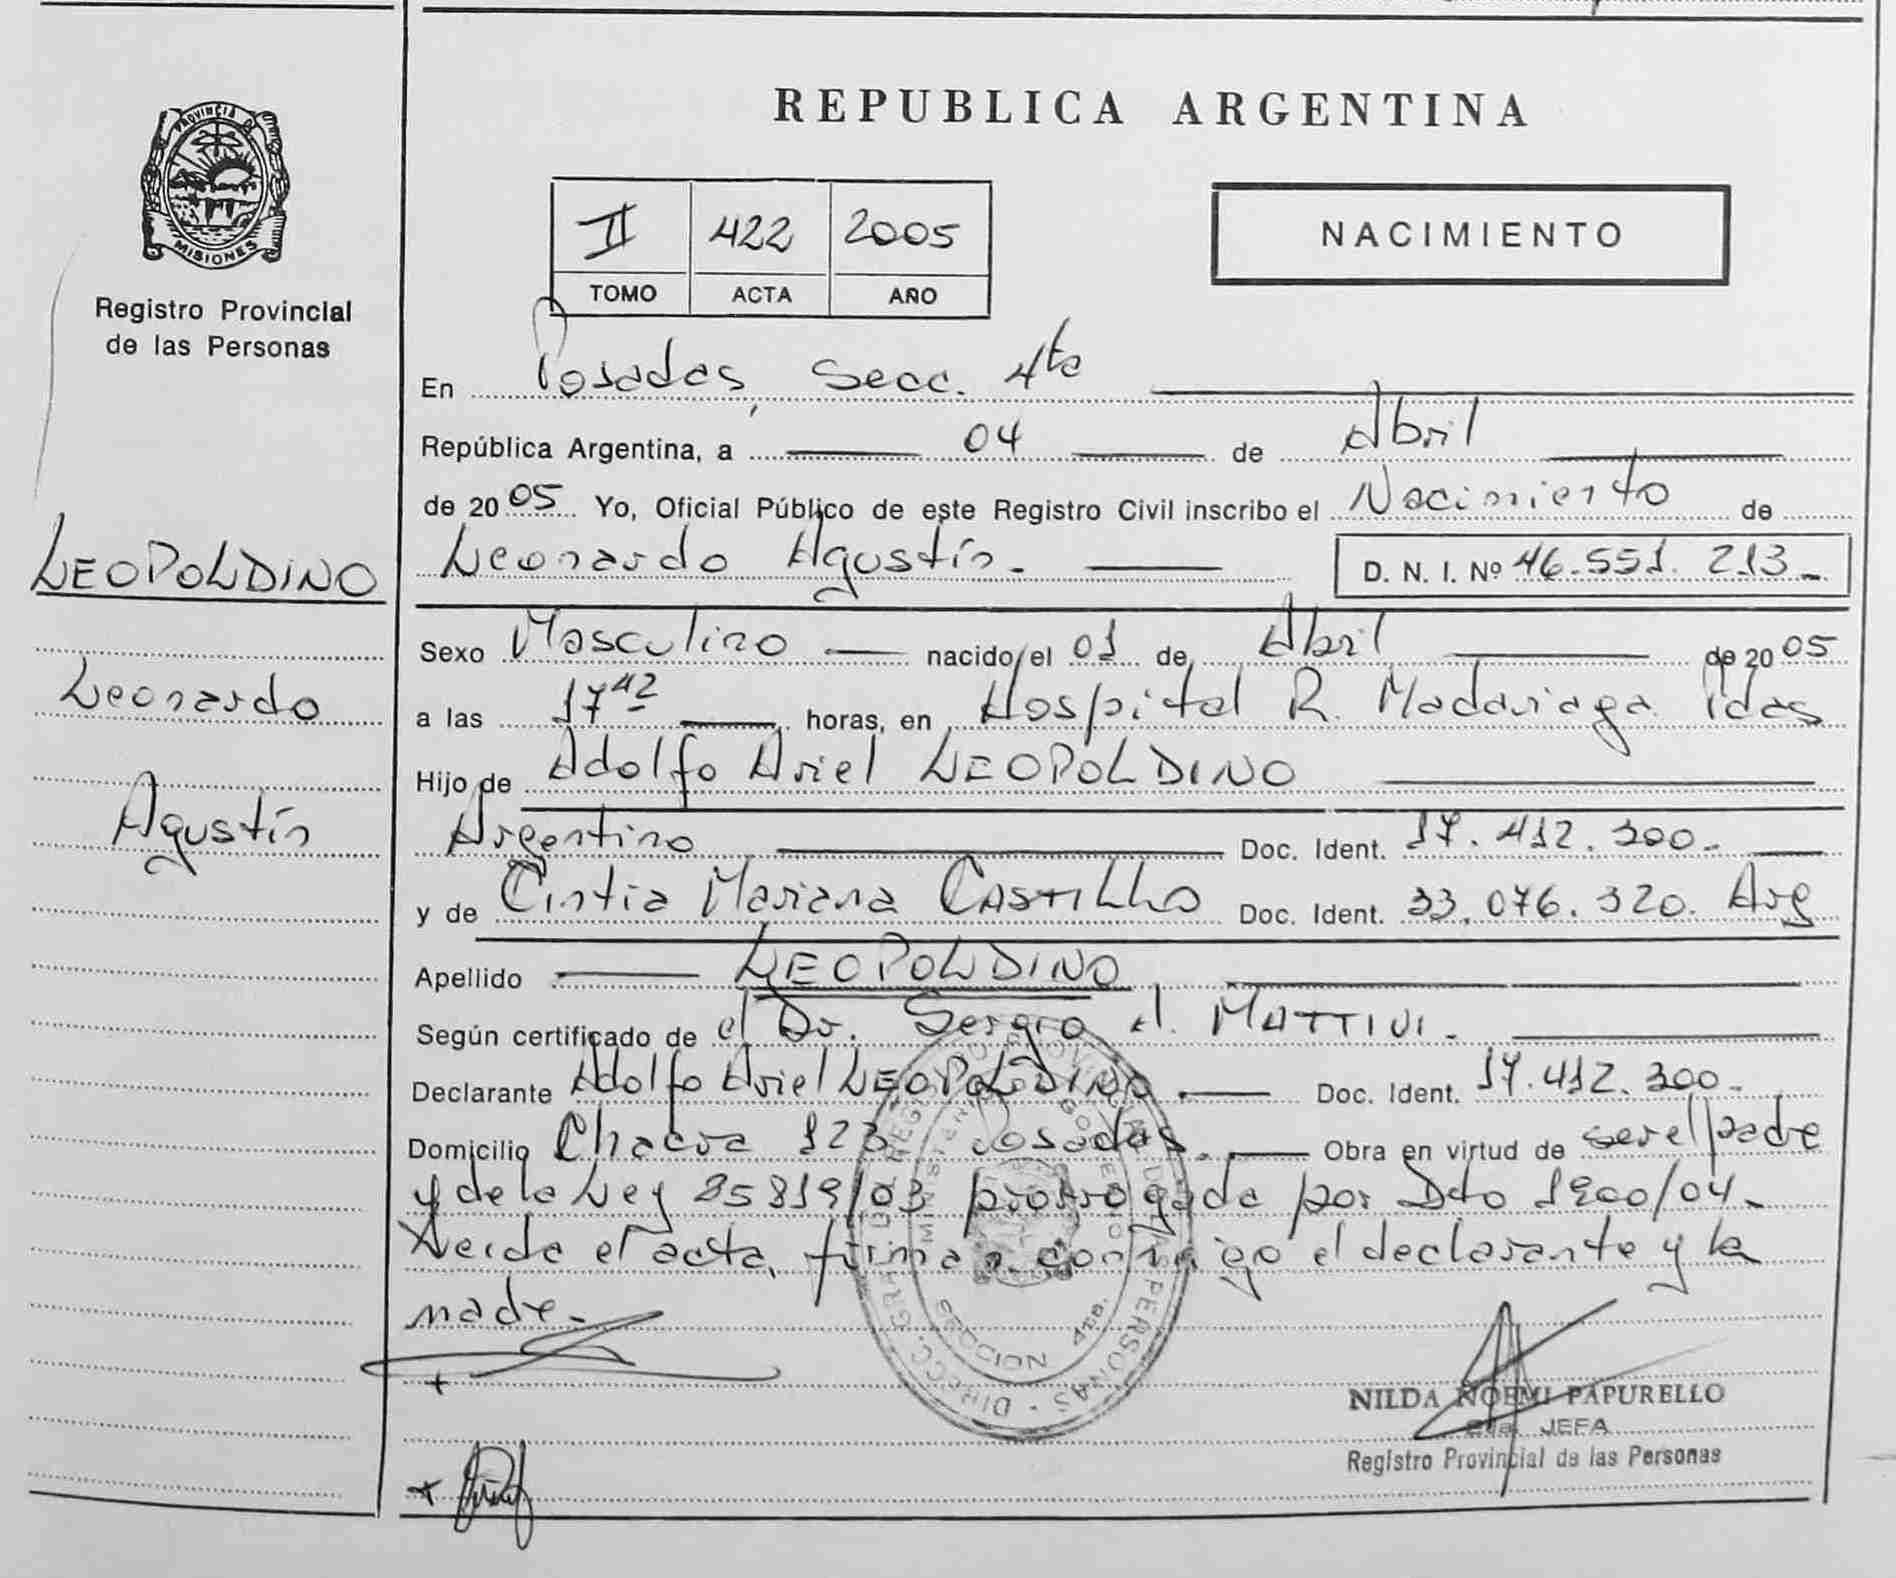 REPUBLICA ARGENTINA
PROVINCIA DE
MISIONES
Registro Provincial
de las Personas
II 422 2005
TOMO ACTA AÑO
NACIMIENTO
LEOPOLDINO
Leonardo
Agustín
En Posadas, Secc. 4ta
República Argentina, a 04 de Abril
de 2005 Yo, Oficial Público de este Registro Civil inscribo el Nacimiento de
Leonardo Agustín. D. N. I. Nº 46.551.213
Sexo Masculino nacido el 01 de Abril de 2005
a las 17 42 horas, en Hospital R. Madariaga Pdas
Hijo de Adolfo Ariel LEOPOLDINO
Argentino Doc. Ident. 17.412.300.
y de Cintia Mariana CASTILLO Doc. Ident. 33.076.320. Arg
Apellido LEOPOLDINO
Según certificado de el Dr. Sergio A. MATTIVI.
Declarante Adolfo Ariel LEOPOLDINO. Doc. Ident. 17.412.300.
Domicilio Chacra 123 Posadas. Obra en virtud de ser el padre
y de la Ley 25819/03 prorrogada por Dto 1900/04.
Leída el acta, firman conmigo el declarante y la
madre.
NILDA NOEMI PAPURELLO
JEFA
Registro Provincial de las Personas